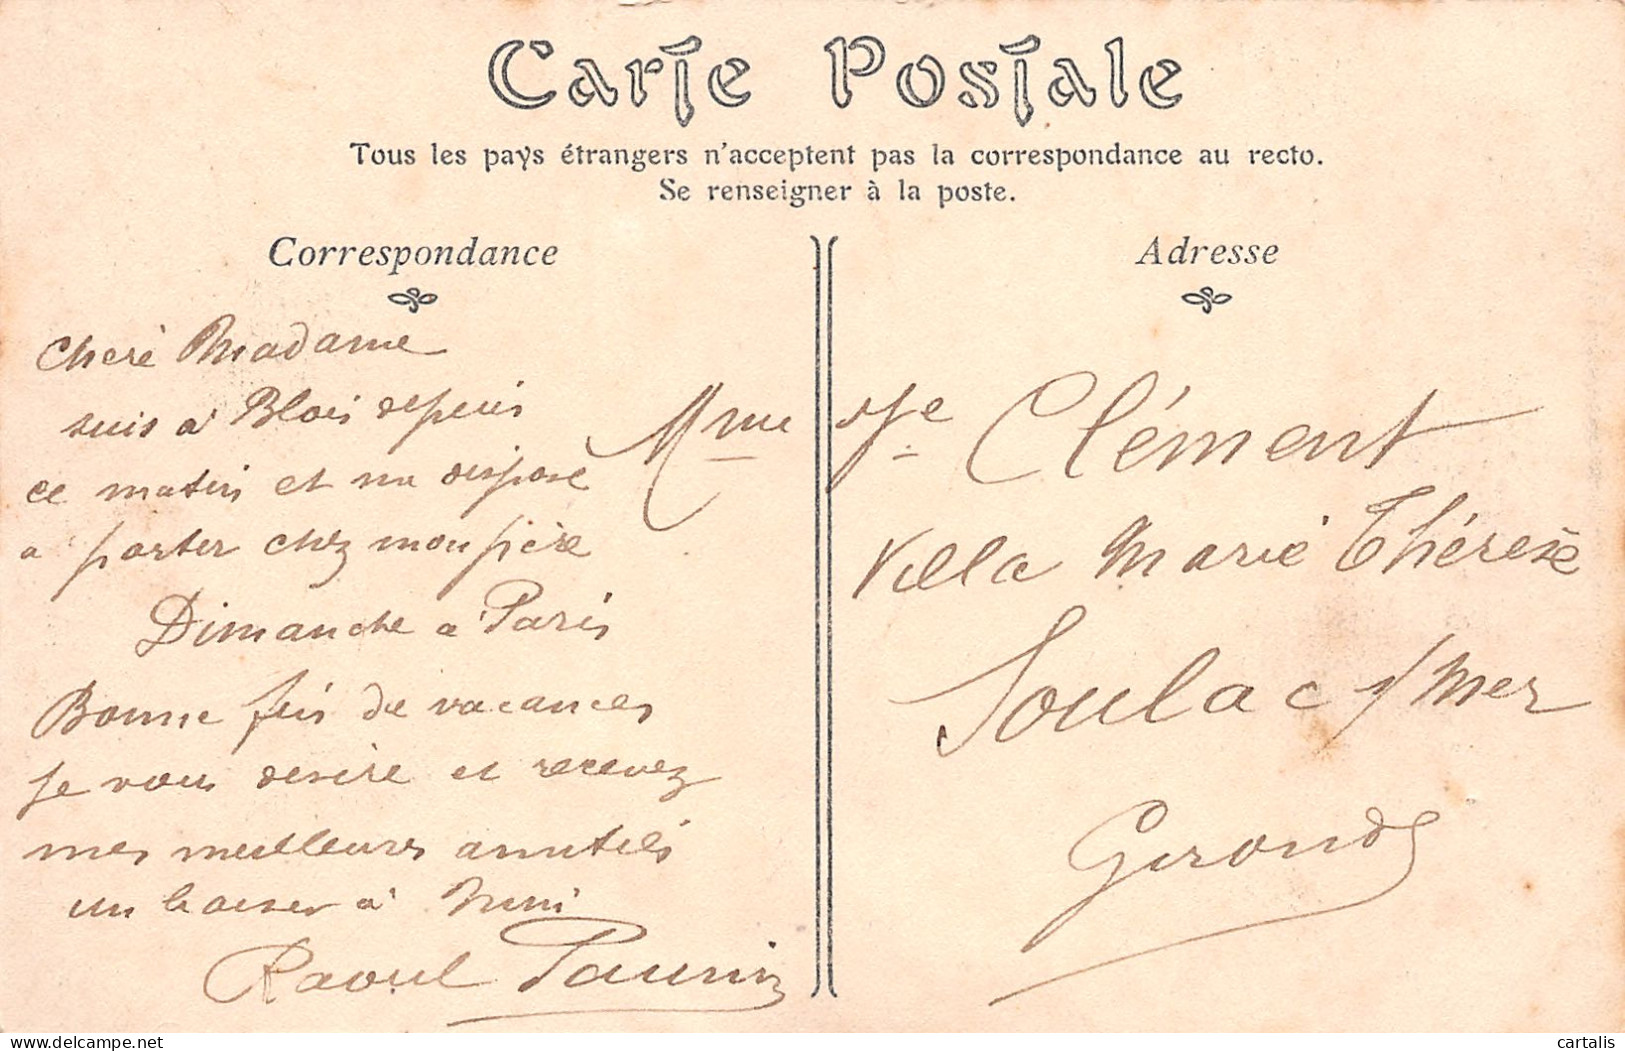 Carte Postale
Tous les pays étrangers n'acceptent pas la correspondance au recto.
Se renseigner à la poste.
Correspondance
Cheré Madame
suis à Blois depuis
ce matin et me dispose
a parter chez mon père
Dimanche a Paris
Bonne fin de vacances
je vous desire et recevez
mes meilleurs amitiés
un baiser à Nini
Raoul
Adresse
Mme Vve Clément
Villa Marie Thérèse
Soulac s/mer
Gironde
cartalis